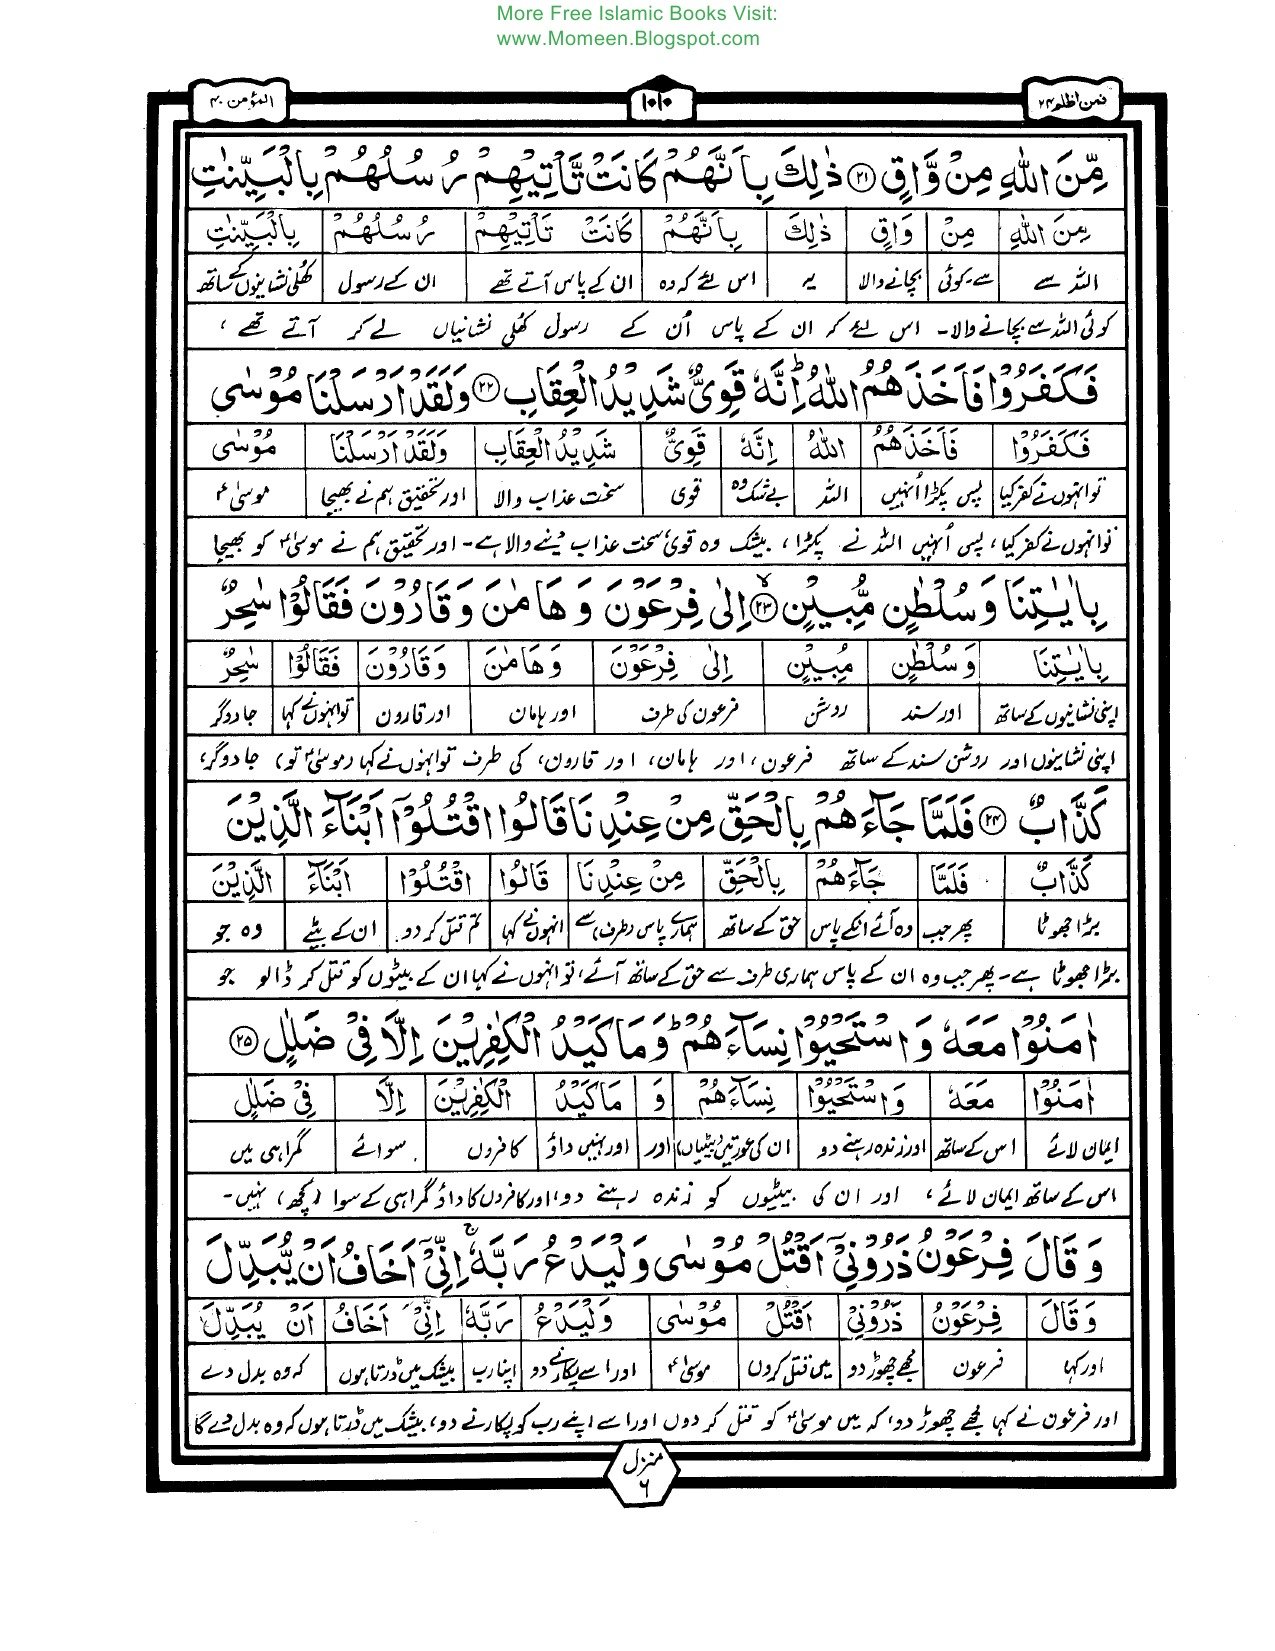 More Free Islamic Books Visit:
www.Momeen.Blogspot.com
فمن اظلم ۲۴
۱۰۱۰
المؤمن ۴۰
مِّنَ اللّٰهِ مِنْ وَّاقٍ ۲۱ ذٰلِكَ بِاَنَّهُمْ كَانَتْ تَّاْتِيْهِمْ رُسُلُهُمْ بِالْبَيِّنٰتِ
مِنَ اللّٰهِ مِنْ وَاقٍ ذٰلِكَ بِاَنَّهُمْ كَانَتْ تَاْتِيْهِمْ رُسُلُهُمْ بِالْبَيِّنٰتِ
اللہ سے سے۔کوئی بچانے والا یہ اس لئے کہ وہ ان کے پاس آتے تھے ان کے رسول کھلی نشانیوں کے ساتھ
کوئی اللہ سے بچانے والا۔ اس لئے کہ ان کے پاس اُن کے رسول کھلی نشانیاں لے کر آتے تھے،
فَكَفَرُوْا فَاَخَذَهُمُ اللّٰهُ ؕ اِنَّهٗ قَوِيٌّ شَدِيْدُ الْعِقَابِ ۲۲ وَلَقَدْ اَرْسَلْنَا مُوْسٰى
فَكَفَرُوْا فَاَخَذَهُمُ اللّٰهُ اِنَّهٗ قَوِيٌّ شَدِيْدُ الْعِقَابِ وَلَقَدْ اَرْسَلْنَا مُوْسٰى
تو انہوں نے کفر کیا پس پکڑا اُنہیں اللہ بے شک وہ قوی سخت عذاب والا اور تحقیق ہم نے بھیجا موسیٰؑ
تو انہوں نے کفر کیا، پس اُنہیں اللہ نے پکڑا، بیشک وہ قوی سخت عذاب دینے والا ہے۔ اور تحقیق ہم نے موسیٰؑ کو بھیجا
بِاٰيٰتِنَا وَسُلْطٰنٍ مُّبِيْنٍ ۲۳ اِلٰى فِرْعَوْنَ وَهَامٰنَ وَقَارُوْنَ فَقَالُوْا سٰحِرٌ
بِاٰيٰتِنَا وَسُلْطٰنٍ مُبِيْنٍ اِلٰى فِرْعَوْنَ وَهَامٰنَ وَقَارُوْنَ فَقَالُوْا سٰحِرٌ
اپنی نشانیوں کے ساتھ اور سند روشن فرعون کی طرف اور ہامان اور قارون تو انہوں نے کہا جادوگر
اپنی نشانیوں اور روشن سند کے ساتھ فرعون، اور ہامان، اور قارون، کی طرف تو انہوں نے کہا (موسیٰؑ تو) جادوگر،
كَذَّابٌ ۲۴ فَلَمَّا جَآءَهُمْ بِالْحَقِّ مِنْ عِنْدِنَا قَالُوا اقْتُلُوْۤا اَبْنَآءَ الَّذِيْنَ
كَذَّابٌ فَلَمَّا جَآءَهُمْ بِالْحَقِّ مِنْ عِنْدِنَا قَالُوا اقْتُلُوْۤا اَبْنَآءَ الَّذِيْنَ
بڑا جھوٹا پھر جب وہ آئے انکے پاس حق کے ساتھ ہمارے پاس (طرف) سے انہوں نے کہا تم قتل کر دو ان کے بیٹے وہ جو
بڑا جھوٹا ہے۔ پھر جب وہ ان کے پاس ہماری طرف سے حق کے ساتھ آئے، تو انہوں نے کہا ان کے بیٹوں کو قتل کر ڈالو جو
اٰمَنُوْا مَعَهٗ وَاسْتَحْيُوْا نِسَآءَهُمْ ؕ وَمَا كَيْدُ الْكٰفِرِيْنَ اِلَّا فِيْ ضَلٰلٍ ۲۵
اٰمَنُوْا مَعَهٗ وَاسْتَحْيُوْا نِسَآءَهُمْ وَ مَا كَيْدُ الْكٰفِرِيْنَ اِلَّا فِيْ ضَلٰلٍ
ایمان لائے اس کے ساتھ اور زندہ رہنے دو ان کی عورتیں (بیٹیاں) اور اور نہیں داؤ کافروں سوائے گمراہی میں
اس کے ساتھ ایمان لائے، اور ان کی بیٹیوں کو زندہ رہنے دو، اور کافروں کا داؤ گمراہی کے سوا (کچھ) نہیں۔
وَقَالَ فِرْعَوْنُ ذَرُوْنِيْۤ اَقْتُلْ مُوْسٰى وَلْيَدْعُ رَبَّهٗ ۚ اِنِّيْۤ اَخَافُ اَنْ يُّبَدِّلَ
وَقَالَ فِرْعَوْنُ ذَرُوْنِيْ اَقْتُلْ مُوْسٰى وَلْيَدْعُ رَبَّهٗ اِنِّيْۤ اَخَافُ اَنْ يُبَدِّلَ
اور کہا فرعون مجھے چھوڑ دو میں قتل کروں موسیٰؑ اور اسے پکارنے دو اپنا رب بیشک میں ڈرتا ہوں کہ وہ بدل دے
اور فرعون نے کہا مجھے چھوڑ دو، کہ میں موسیٰؑ کو قتل کر دوں اور اسے اپنے رب کو پکارنے دو، بیشک میں ڈرتا ہوں کہ وہ بدل دے گا
منزل
۶